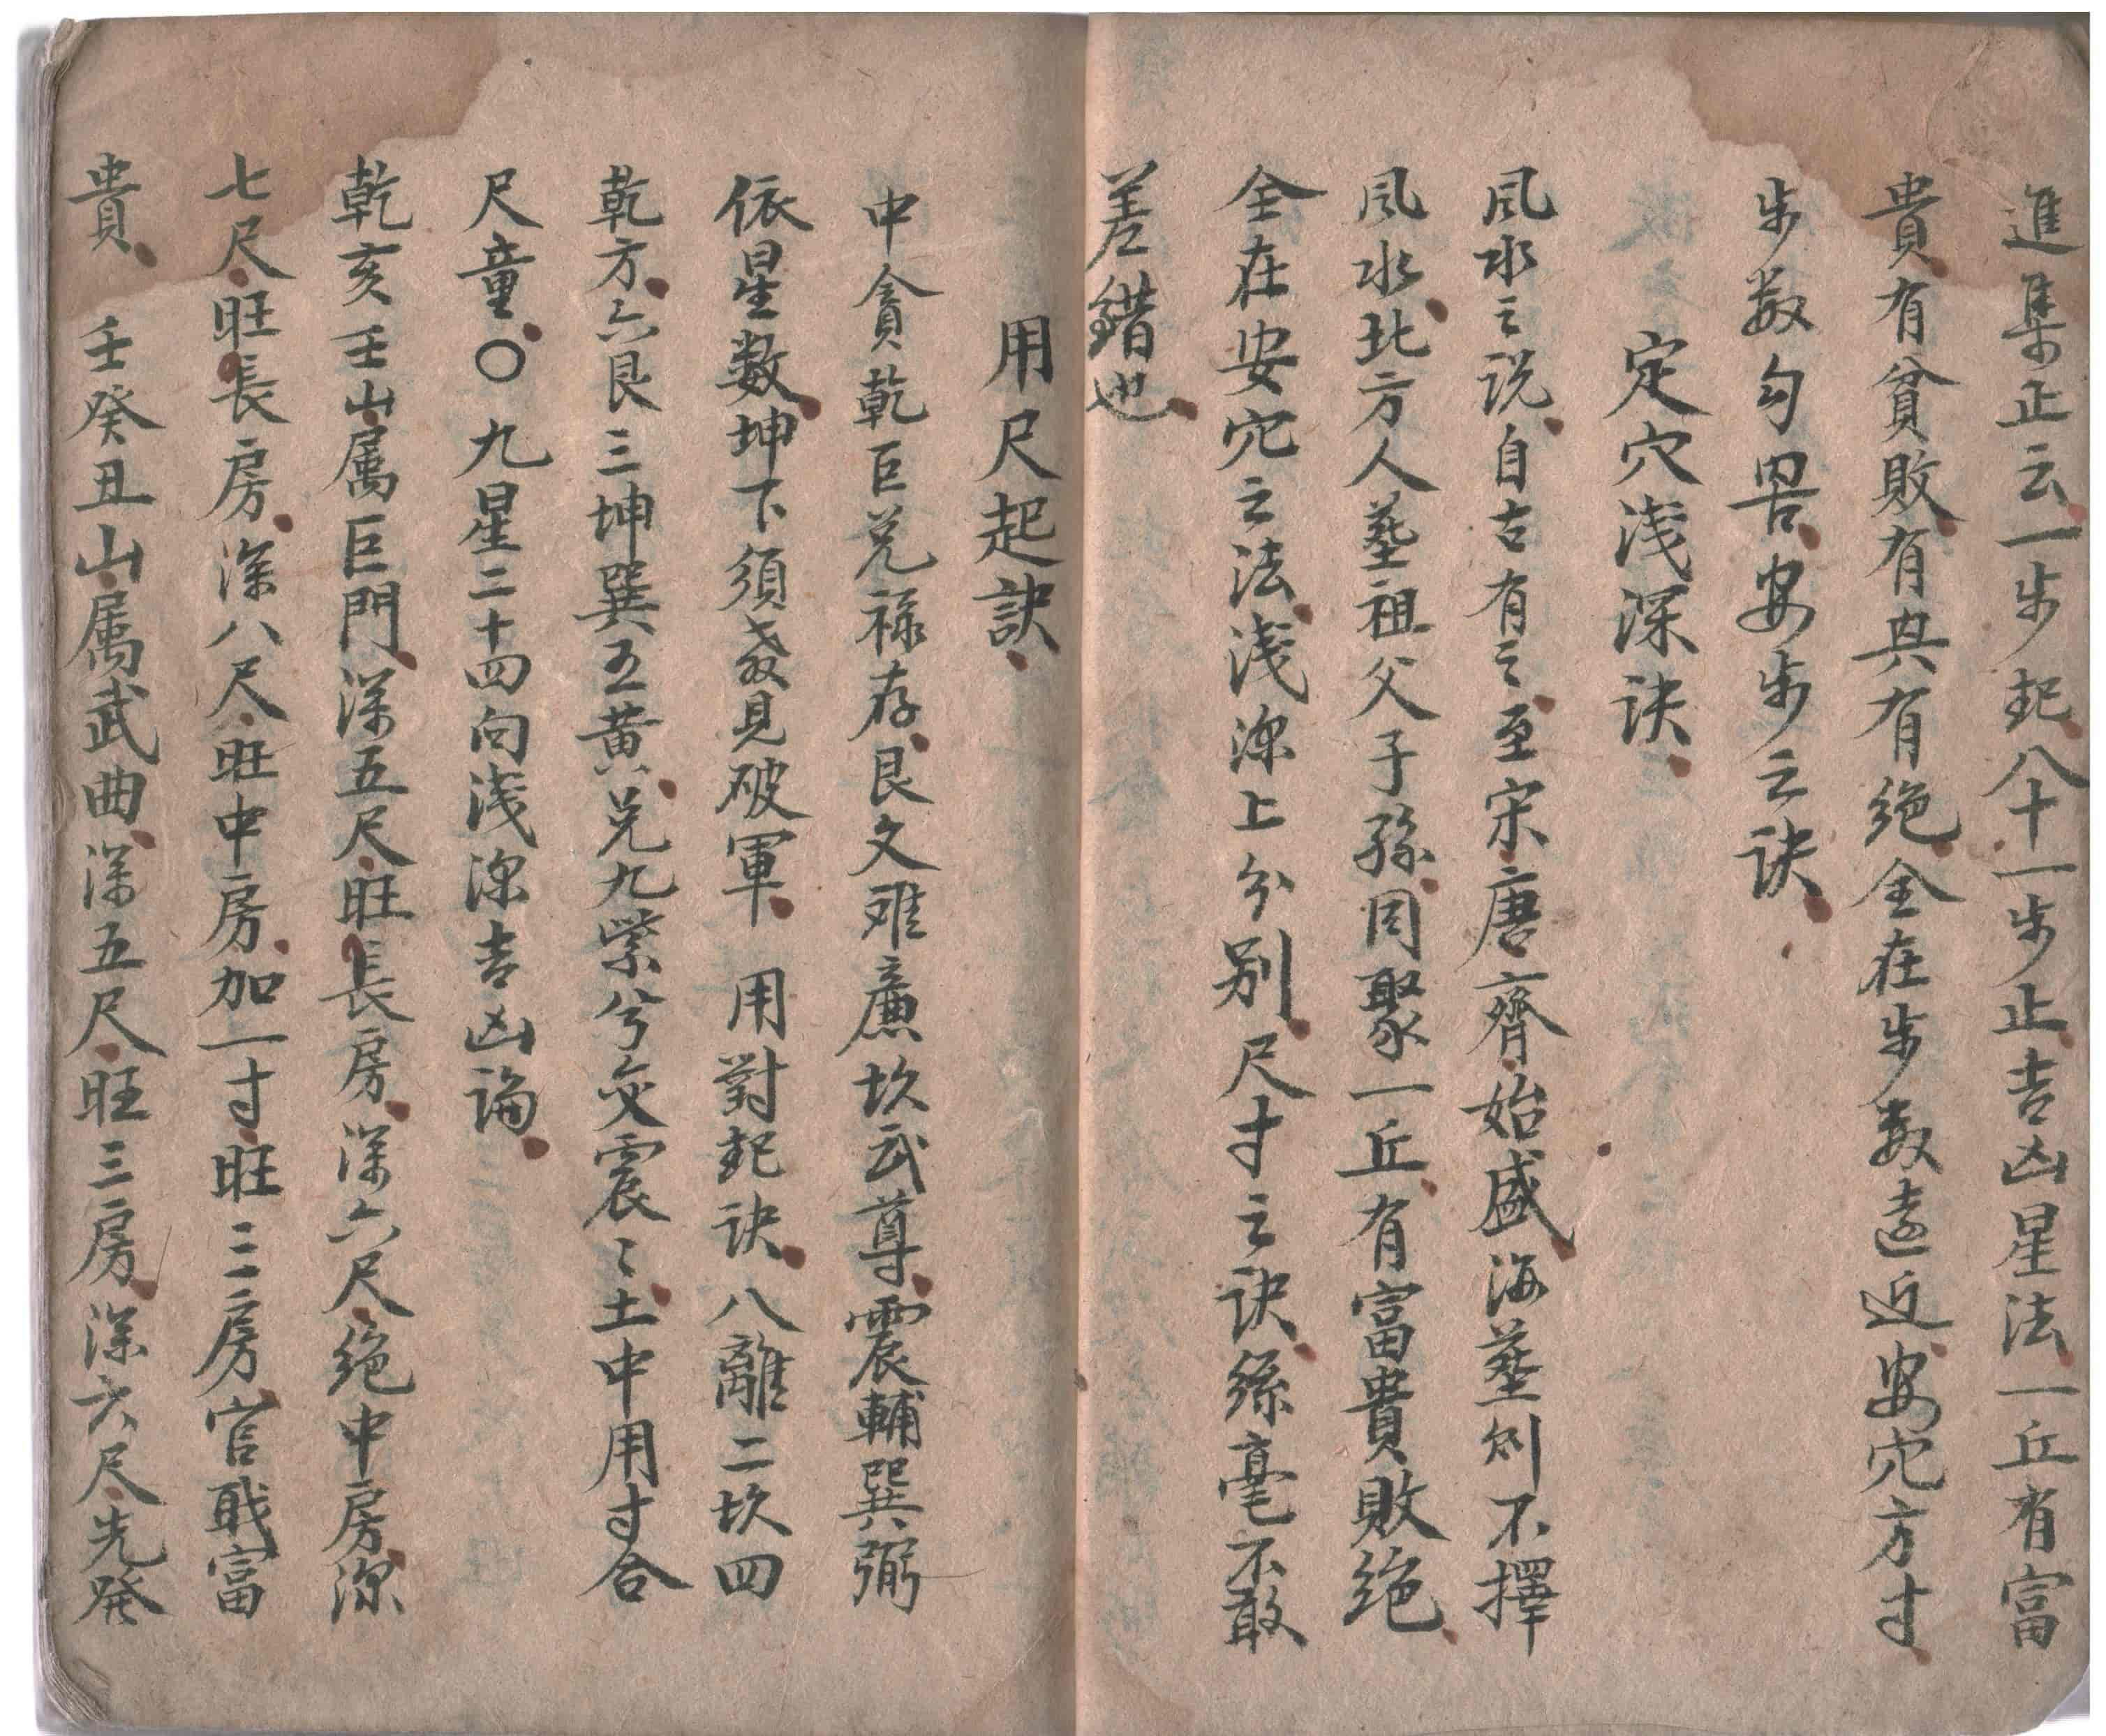 進集止云一步起八十一步止吉凶星法一丘有富
貴有貧敗有興有絕全在步数遠近安穴方寸
步数勾畧安步之訣
定穴浅深訣
风水之说自古有之至宋唐齊始盛海塟則不擇
风水北方人塟祖父子孫同聚一丘有富貴敗绝
全在安穴之法浅深上分别尺寸之訣絲毫不敢
差錯也
用尺起訣
中貪乾巨兑禄存艮文难廉坎武尊震輔巽弼
依星数坤下須教見破軍 用對起訣八離二坎四
乾方六艮三坤巽五黄兑九紫兮交震〻土中用寸合
尺童〇九星二十四向浅深吉凶論
乾亥壬山属巨門深五尺旺長房深六尺绝中房深
七尺旺長房深八尺旺中房加一寸旺三房官戢富
貴 壬癸丑山属武曲深五尺旺三房深六尺先發